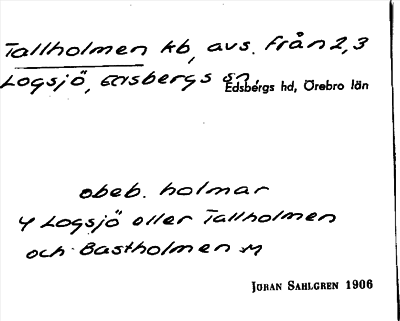 Tallholmen kb, avs. från 2,3
Logsjö, Edsbergs sn,
Edsbergs hd, Örebro län
obeb. holmar
4 Logsjö öller Tallholmen
och Bastholmen M
JÖRAN SAHLGREN 1906